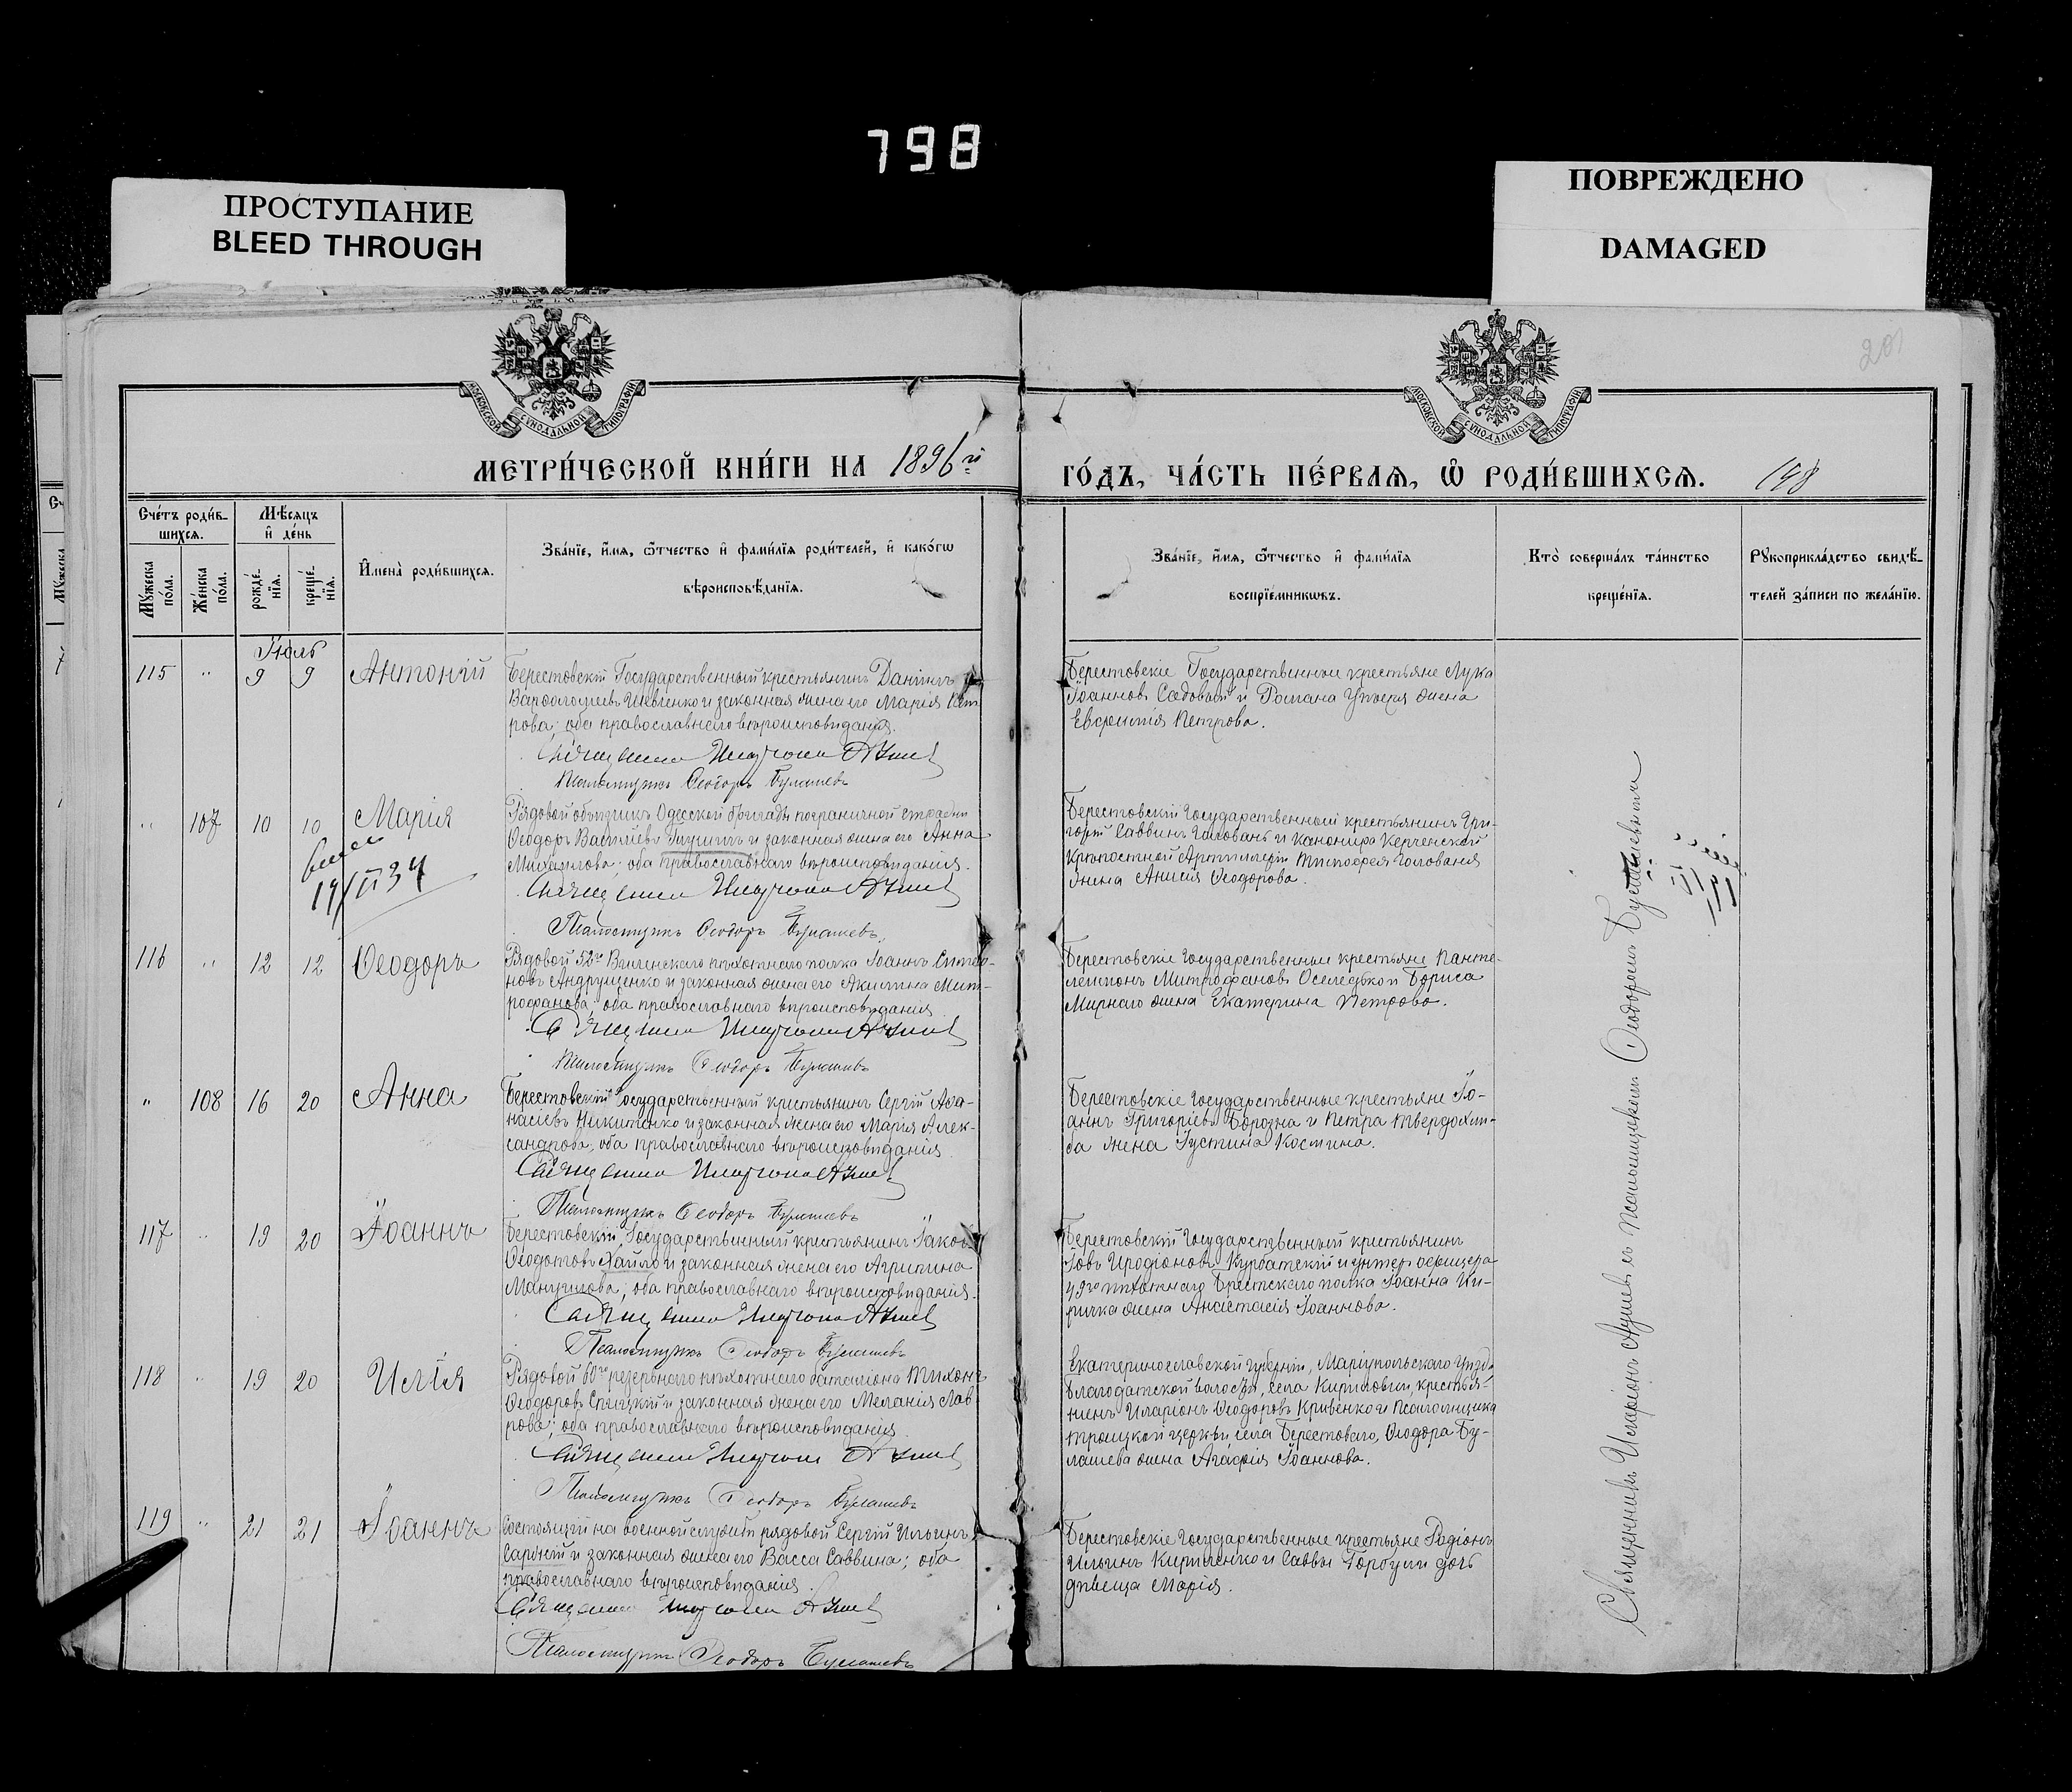 798
ПРОСТУПАНИЕ
BLEED THROUGH
ПОВРЕЖДЕНО
DAMAGED
201
МОСКОВСКОЙ СУНОДАЛЬНОЙ ТИПОГРАФІИ
МОСКОВСКОЙ СУНОДАЛЬНОЙ ТИПОГРАФІИ
МЕТРИ́ЧЕСКОЙ КНИ́ГИ НА 1896й
ГО́ДЪ, ЧА́СТЬ ПЕ́РВАѦ, Ѡ РОДИ́ВШИХСѦ. 198
Сче́тъ роди́в-
шихсѧ.
Мꙋжеска по́ла.
Же́нска по́ла.
Мѣ́сѧцъ
и де́нь
рожде́-
нїѧ.
креще́-
нїѧ.
Имена̀ роди́вшихсѧ.
Зва́нїе, и́мѧ, ѻ́тчество и фами́лїѧ роди́телей, и како́гѡ
вѣроисповѣ́данїѧ.
Зва́нїе, и́мѧ, ѻ́тчество и фами́лїѧ
воспрїе́мникѡвъ.
Кто̀ соверша́лъ та́инство
креще́нїѧ.
Рꙋкоприкла́дство свидѣ́-
телей за́писи по жела́нїю.
Іюль
115 " 9 9 Антоній
Берестовскій Государственный крестьянинъ Даніилъ
Варѳоломіевъ Шевченко и законная жена его Марія Пет-
рова; оба православнаго вѣроисповѣданія.
Священникъ Иларіонъ
Псаломщикъ Ѳеодоръ Булашевъ
Берестовскіе Государственные крестьяне Лука
Іоанновъ Садовый и Романа жена
Евфимія Петрова.
" 107 10 10 Марія
19/II 34
Рядовой объѣзчикъ Одесской бригады пограничной стражи
Ѳеодоръ Василіевъ и законная жена его Анна
Михаилова; оба православнаго вѣроисповѣданія.
Священникъ Иларіонъ
Псаломщикъ Ѳеодоръ Булашевъ
Берестовскій Государственный крестьянинъ Гри-
горій Саввинъ Головань и канонира Керченской
Крѣпостной Артиллеріи Тимоѳея Голованя
жена Анисія Ѳеодорова.
116 " 12 12 Ѳеодоръ
Рядовой 52го Виленскаго пѣхотнаго полка Іоаннъ Симео-
новъ Андрущенко и законная жена его Акилина Мит-
рофанова; оба православнаго вѣроисповѣданія.
Священникъ Иларіонъ
Псаломщикъ Ѳеодоръ Булашевъ
Берестовскіе Государственные крестьяне Панте-
леимонъ Митрофановъ Оселедько и Бориса
Мирнаго жена Екатерина Петрова.
" 108 16 20 Анна
Берестовскій Государственный крестьянинъ Сергій Аѳа-
насіевъ Никитенко и законная жена его Марія Алек-
сандрова; оба православнаго вѣроисповѣданія.
Священникъ Иларіонъ
Псаломщикъ Ѳеодоръ Булашевъ
Берестовскіе Государственные крестьяне Іо-
аннъ Григоріевъ Борозна и Петра Твердохлѣ-
ба жена Іустина Космина.
117 " 19 20 Іоаннъ
Берестовскій Государственный крестьянинъ Іаковъ
Ѳеодотовъ Хайло и законная жена его Агрипина
Мануилова; оба православнаго вѣроисповѣданія.
Священникъ Иларіонъ
Псаломщикъ Ѳеодоръ Булашевъ
Берестовскій Государственный крестьянинъ
Іовъ Иродіоновъ Курбатскій и унтеръ офицера
49го пѣхотнаго Брестскаго полка Іоанна Ки-
ричка жена Анастасія Іоаннова.
118 " 19 20 Илія
Рядовой 60го резервнаго пѣхотнаго баталіона Тихонъ
Ѳеодоровъ и законная жена его Меланія Лав-
рова; оба православнаго вѣроисповѣданія.
Священникъ Иларіонъ
Псаломщикъ Ѳеодоръ Булашевъ
Екатеринославской губерніи, Маріупольскаго уѣзда
Благодатской волости, села Кириловки, крестья-
нинъ Иларіонъ Ѳеодоровъ Кривенко и Псаломщика
Троицкой церкви села Берестоваго, Ѳеодора Бу-
лашева жена Агафія Іоаннова.
119 " 21 21 Іоаннъ
Состоящій на военной службѣ рядовой Сергій Ильинъ
и законная жена его Васса Саввина; оба
православнаго вѣроисповѣданія.
Священникъ Иларіонъ
Псаломщикъ Ѳеодоръ Булашевъ
Берестовскіе Государственные крестьяне Родіонъ
Ильинъ Кириленко и Саввы Горбули дочь
дѣвица Марія.
Священникъ Иларіонъ съ псаломщикомъ Ѳеодоромъ Булашевымъ